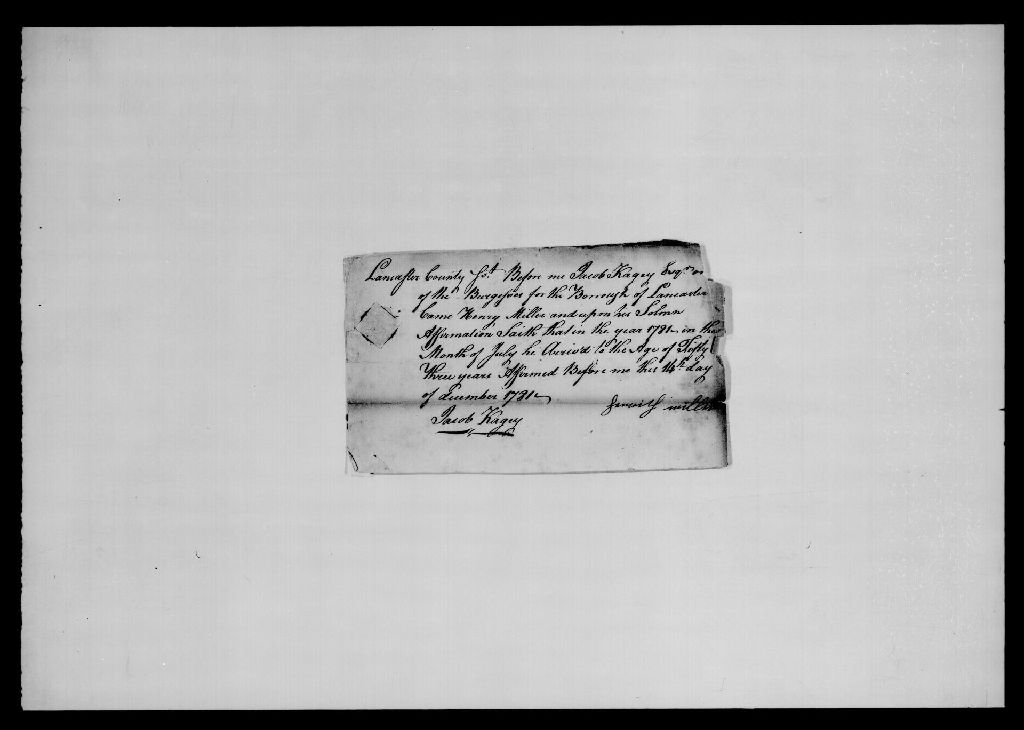 Lancaster County Ss.t Before me Jacob Kagey Esqr. on
of the Burgesses for the Borrough of Lancaster
Came Henry Miller and upon his Solmn
Affirmation Saith that in the year 1781 in the
Month of July he Arrived to the Age of Fifty
Three years Affirmed Before me this 14th day
of december 1781
Jacob Kagey